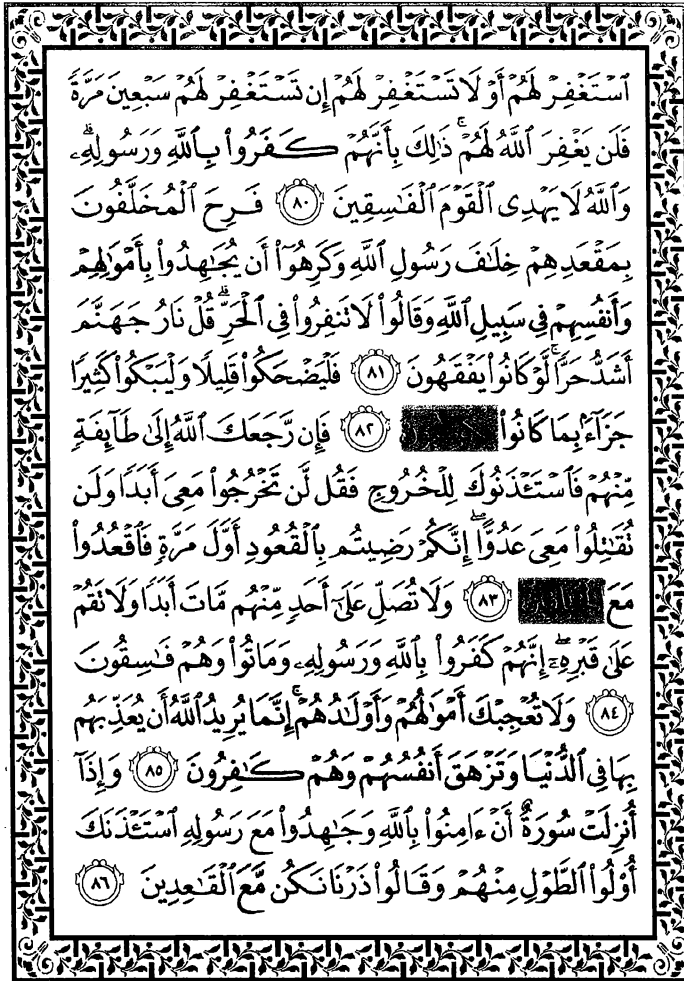 ٱسْتَغْفِرْ لَهُمْ أَوْ لَا تَسْتَغْفِرْ لَهُمْ إِن تَسْتَغْفِرْ لَهُمْ سَبْعِينَ مَرَّةً
فَلَن يَغْفِرَ ٱللَّهُ لَهُمْ ۚ ذَٰلِكَ بِأَنَّهُمْ كَفَرُوا۟ بِٱللَّهِ وَرَسُولِهِۦ ۗ
وَٱللَّهُ لَا يَهْدِى ٱلْقَوْمَ ٱلْفَـٰسِقِينَ ٨٠ فَرِحَ ٱلْمُخَلَّفُونَ
بِمَقْعَدِهِمْ خِلَـٰفَ رَسُولِ ٱللَّهِ وَكَرِهُوٓا۟ أَن يُجَـٰهِدُوا۟ بِأَمْوَٰلِهِمْ
وَأَنفُسِهِمْ فِى سَبِيلِ ٱللَّهِ وَقَالُوا۟ لَا تَنفِرُوا۟ فِى ٱلْحَرِّ ۗ قُلْ نَارُ جَهَنَّمَ
أَشَدُّ حَرًّا ۚ لَّوْ كَانُوا۟ يَفْقَهُونَ ٨١ فَلْيَضْحَكُوا۟ قَلِيلًا وَلْيَبْكُوا۟ كَثِيرًا
جَزَآءًۢ بِمَا كَانُوا۟ ٨٢ فَإِن رَّجَعَكَ ٱللَّهُ إِلَىٰ طَآئِفَةٍ
مِّنْهُمْ فَٱسْتَـْٔذَنُوكَ لِلْخُرُوجِ فَقُل لَّن تَخْرُجُوا۟ مَعِىَ أَبَدًا وَلَن
تُقَـٰتِلُوا۟ مَعِىَ عَدُوًّا ۖ إِنَّكُمْ رَضِيتُم بِٱلْقُعُودِ أَوَّلَ مَرَّةٍ فَٱقْعُدُوا۟
مَعَ ٨٣ وَلَا تُصَلِّ عَلَىٰٓ أَحَدٍ مِّنْهُم مَّاتَ أَبَدًا وَلَا تَقُمْ
عَلَىٰ قَبْرِهِۦٓ ۖ إِنَّهُمْ كَفَرُوا۟ بِٱللَّهِ وَرَسُولِهِۦ وَمَاتُوا۟ وَهُمْ فَـٰسِقُونَ
٨٤ وَلَا تُعْجِبْكَ أَمْوَٰلُهُمْ وَأَوْلَـٰدُهُمْ ۚ إِنَّمَا يُرِيدُ ٱللَّهُ أَن يُعَذِّبَهُم
بِهَا فِى ٱلدُّنْيَا وَتَزْهَقَ أَنفُسُهُمْ وَهُمْ كَـٰفِرُونَ ٨٥ وَإِذَآ
أُنزِلَتْ سُورَةٌ أَنْ ءَامِنُوا۟ بِٱللَّهِ وَجَـٰهِدُوا۟ مَعَ رَسُولِهِ ٱسْتَـْٔذَنَكَ
أُو۟لُوا۟ ٱلطَّوْلِ مِنْهُمْ وَقَالُوا۟ ذَرْنَا نَكُن مَّعَ ٱلْقَـٰعِدِينَ ٨٦